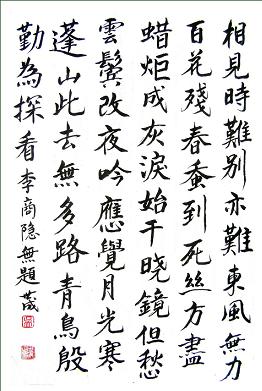 相見時難別亦難東風無力
百花殘春蚕到死絲方盡
蜡炬成灰淚始干晓鏡但愁
雲鬓改夜吟應覺月光寒
蓬山此去無多路青鳥殷
勤為探看李商隐無題